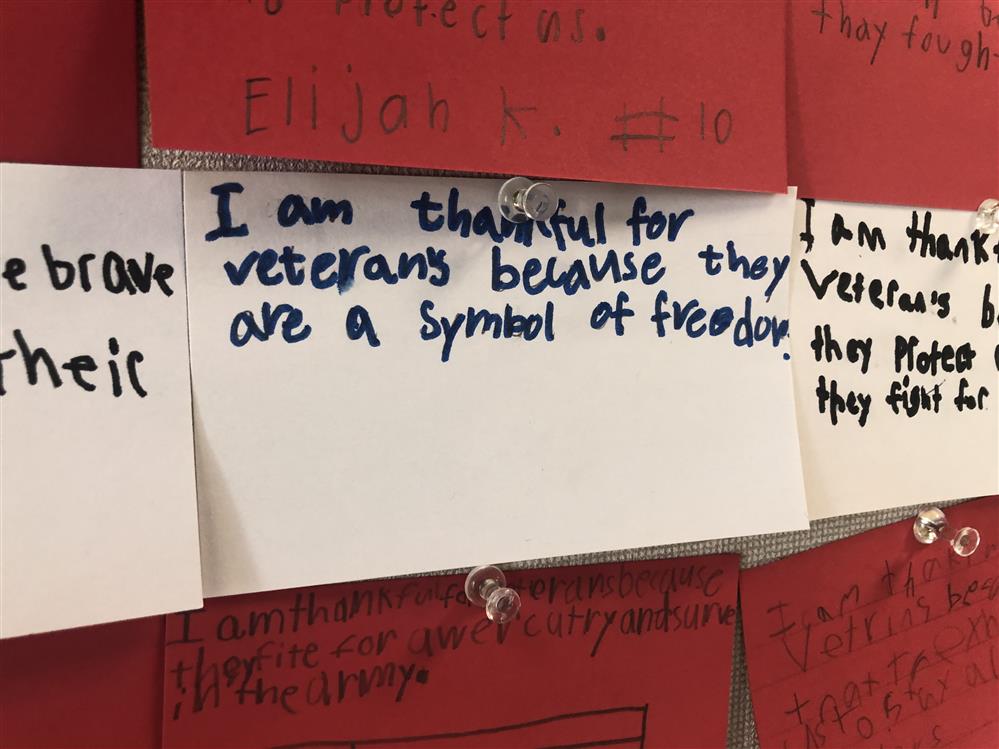 Protect us.
Elijah K. #10
thay fough
e brave
their
I am thankful for
veteran's because they
are a symbol of freedom.
I am thank
Veteran's b
they Protect
they fight for
I am thankful for veterans because
they fite for awer cutry and surve
in the army.
I am
Vetrins bec
that